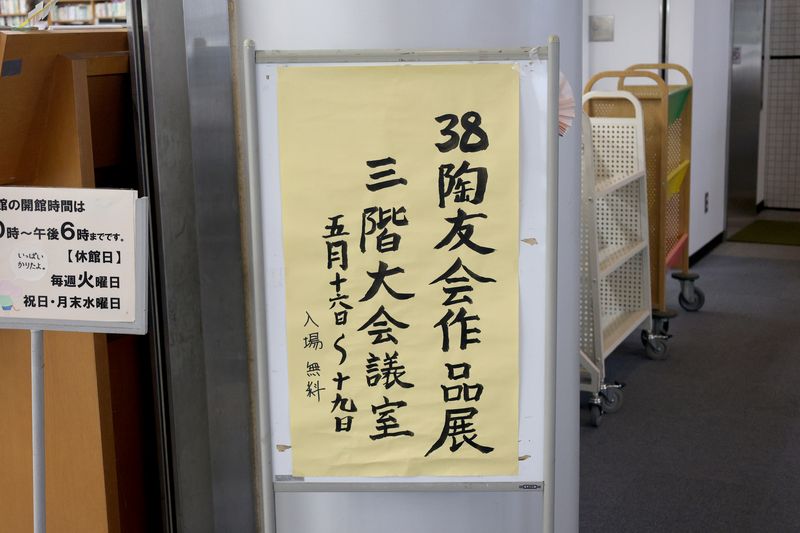 38陶友会作品展
三階大会議室
五月十六日〜十九日
入場無料
館の開館時間は
0時〜午後6時までです。
【休館日】
いっぱい
かりたよ。
毎週火曜日
祝日・月末水曜日